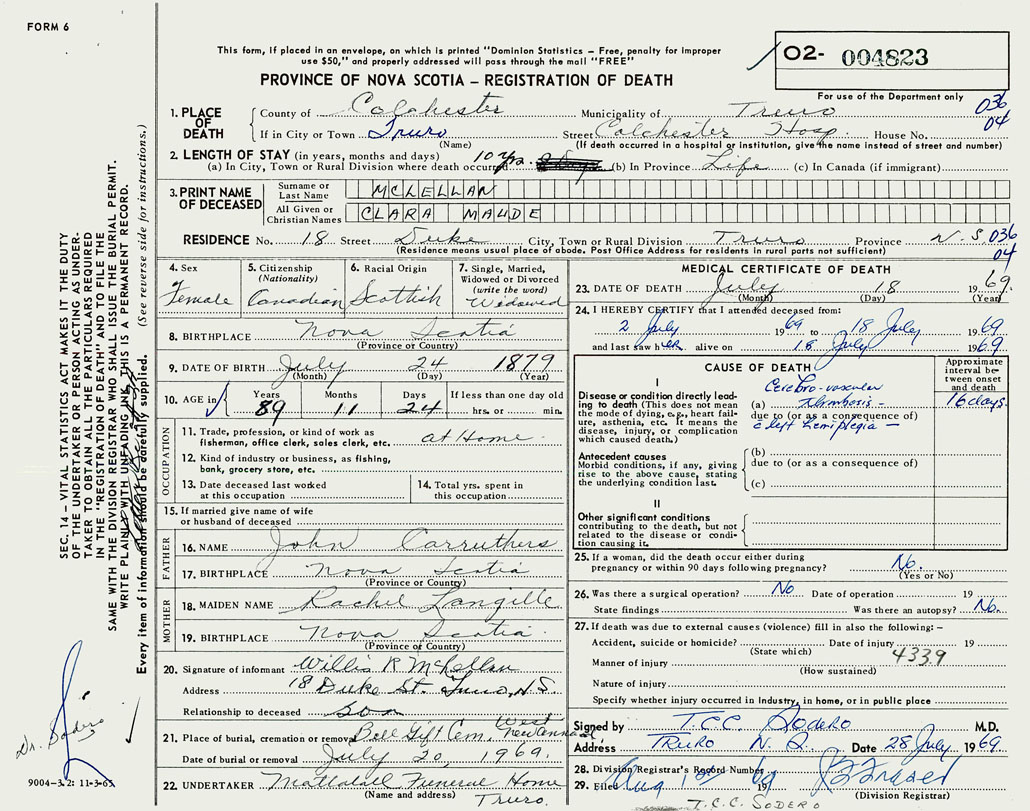 FORM 6
This form, if placed in an envelope, on which is printed "Dominion Statistics – Free, penalty for improper
use $50," and properly addressed will pass through the mail "FREE"
PROVINCE OF NOVA SCOTIA – REGISTRATION OF DEATH
02- 004823
For use of the Department only
036
04
1. PLACE OF DEATH
County of Colchester Municipality of Truro
If in City or Town Truro Street Colchester Hosp. House No.
(Name) (If death occurred in a hospital or institution, give the name instead of street and number)
2. LENGTH OF STAY (in years, months and days)
(a) In City, Town or Rural Division where death occurred 10 yrs. (b) In Province Life (c) In Canada (if immigrant)
3. PRINT NAME OF DECEASED
Surname or Last Name MCLELLAN
All Given or Christian Names CLARA MAUDE
RESIDENCE No. 18 Street Duke City, Town or Rural Division Truro Province N.S. 036
(Residence means usual place of abode. Post Office Address for residents in rural parts not sufficient) 04
4. Sex Female
5. Citizenship (Nationality) Canadian
6. Racial Origin Scottish
7. Single, Married, Widowed or Divorced (write the word) Widowed
8. BIRTHPLACE Nova Scotia
(Province or Country)
9. DATE OF BIRTH July 24 1879
(Month) (Day) (Year)
10. AGE in Years 89 Months 11 Days 24 If less than one day old hrs. or min.
OCCUPATION
11. Trade, profession, or kind of work as fisherman, office clerk, sales clerk, etc. at Home
12. Kind of industry or business, as fishing, bank, grocery store, etc.
13. Date deceased last worked at this occupation
14. Total yrs. spent in this occupation
15. If married give name of wife or husband of deceased
FATHER
16. NAME John Carruthers
17. BIRTHPLACE Nova Scotia
(Province or Country)
MOTHER
18. MAIDEN NAME Rachel Langille
19. BIRTHPLACE Nova Scotia
(Province or Country)
20. Signature of informant Willis R McLellan
Address 18 Duke St. Truro, N.S.
Relationship to deceased son
21. Place of burial, cremation or removal Bell Gift Cem. West New Annan
Date of burial or removal July 20, 1969.
22. UNDERTAKER Mattatall Funeral Home
(Name and address) Truro.
MEDICAL CERTIFICATE OF DEATH
23. DATE OF DEATH July 18 1969.
(Month) (Day) (Year)
24. I HEREBY CERTIFY that I attended deceased from:
2 July 1969 to 18 July 1969
and last saw her alive on 18 July 1969
CAUSE OF DEATH
Approximate interval between onset and death
I
Disease or condition directly leading to death (This does not mean the mode of dying, e.g., heart failure, asthenia, etc. It means the disease, injury, or complication which caused death.)
(a) Cerebro-vascular thrombosis –
due to (or as a consequence of)
c left hemiplegia –
16 days.
Antecedent causes
Morbid conditions, if any, giving rise to the above cause, stating the underlying condition last.
(b)
due to (or as a consequence of)
(c)
II
Other significant conditions
contributing to the death, but not related to the disease or condition causing it.
25. If a woman, did the death occur either during
pregnancy or within 90 days following pregnancy? No.
(Yes or No)
26. Was there a surgical operation? No Date of operation 19
State findings Was there an autopsy? No.
27. If death was due to external causes (violence) fill in also the following: –
Accident, suicide or homicide? Date of injury 19
(State which)
Manner of injury 4339
(How sustained)
Nature of injury
Specify whether injury occurred in industry, in home, or in public place
Signed by T.C.C. Sodero M.D.
Address TRURO N.S. Date 28 July 1969.
28. Division Registrar's Record Number
29. Filed Aug 1 19
(Division Registrar)
T.C.C. SODERO
SEC. 14 – VITAL STATISTICS ACT MAKES IT THE DUTY
OF THE UNDERTAKER OR PERSON ACTING AS UNDER-
TAKER TO OBTAIN ALL THE PARTICULARS REQUIRED
IN THE "REGISTRATION OF DEATH" AND TO FILE THE
SAME WITH THE DIVISION REGISTRAR WHO SHALL ISSUE THE BURIAL PERMIT.
WRITE PLAINLY WITH UNFADING INK, THIS IS A PERMANENT RECORD.
Every item of information should be carefully supplied. (See reverse side for instructions.)
Dr. Sodero
9004-3.2: 11-3-65